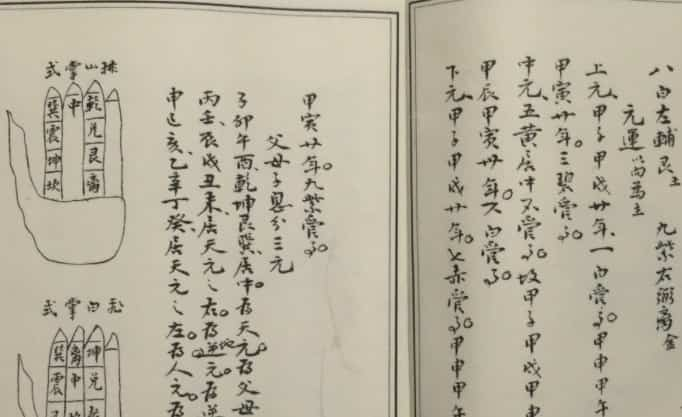 八白左輔艮土 九紫右弼离金
元運以向為主
上元甲子甲戌廿年一白管事甲申甲午
甲寅廿年三碧管事
中元五黃居中又管事故甲子甲戌甲申
甲辰甲寅廿年六白管事
下元甲子甲戌廿年七赤管事甲申甲午
甲寅廿年九紫管事
父母子息分三元
子卯午酉乾坤艮巽居中為天元為父母
丙壬辰戌丑未居天元之右為地元為逆
申巳亥乙辛丁癸居天元之左為人元為
排山掌式
乾兌艮离
中
巽震坤坎
飛白掌式
坤兌乾
离中
巽震